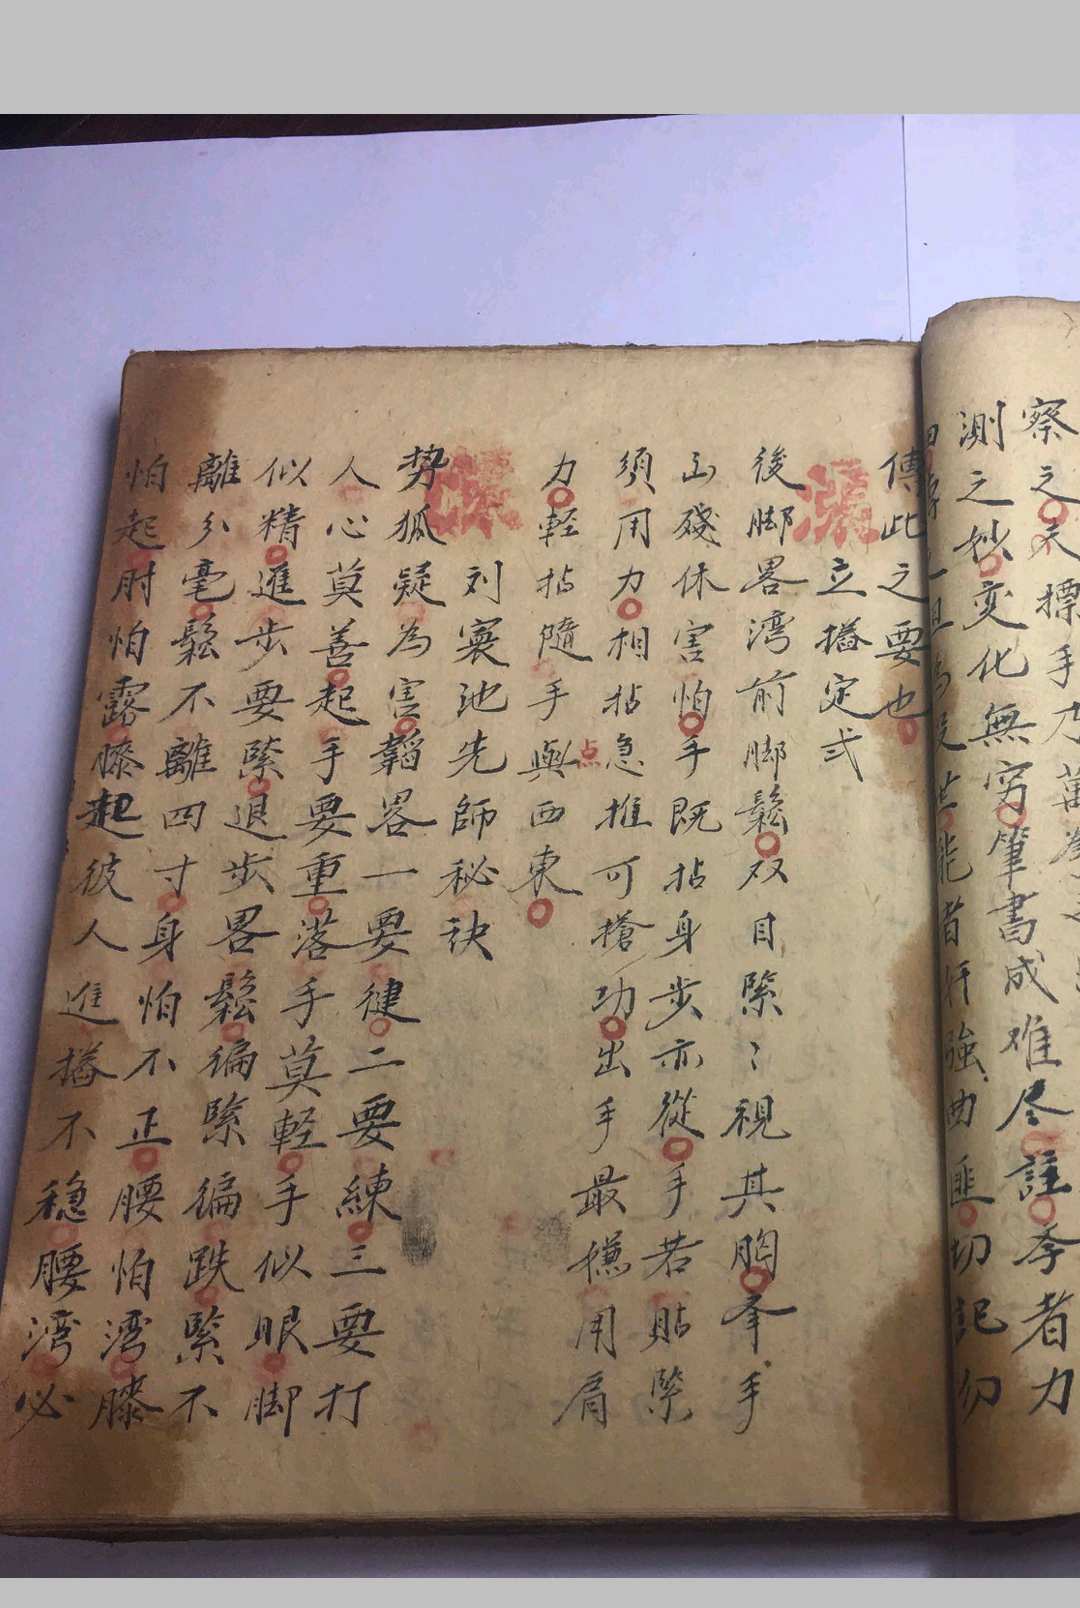 察之天標手乃萬
測之妙变化無穷筆書成难尽註李者力
能者奸強曲匪切記勿
傳此之要也
立橎定弍
後脚畧湾前脚鬆双目緊〻視其胸峯手
出殘休害怕手既拈身歩亦從手若貼緊
須用力相拈急推可搶功出手最穏用肩
力軽拈隨手與西東
点
刘寰池先師秘訣
势狐疑為害韜畧一要健二要練三要打
人心莫善起手要重落手莫軽手似眼脚
似精進步要緊退步畧鬆徧緊徧跌緊不
離分毫鬆不離四寸身怕不正腰怕湾膝
怕起肘怕露膝起彼人進橎不穏腰湾必